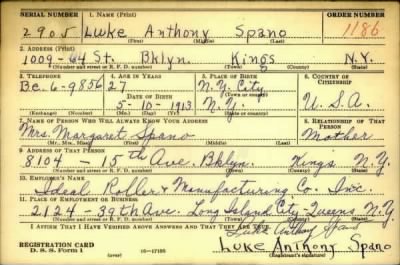 SERIAL NUMBER 1. NAME (Print) ORDER NUMBER
2905 Luke Anthony Spano 1186
(First) (Middle) (Last)
2. ADDRESS (Print)
1009-64 St. Bklyn. Kings N.Y.
(Number and street or R. F. D. number) (Town) (County) (State)
3. TELEPHONE 4. AGE IN YEARS 5. PLACE OF BIRTH 6. COUNTRY OF CITIZENSHIP
Be. 6-9856 27 N.Y. City
DATE OF BIRTH
5-10-1913 N.Y. U.S.A.
(Exchange) (Number) (Mo.) (Day) (Yr.) (State or country)
7. NAME OF PERSON WHO WILL ALWAYS KNOW YOUR ADDRESS 8. RELATIONSHIP OF THAT PERSON
Mrs. Margaret Spano Mother
(Mr., Mrs., Miss) (First) (Middle) (Last)
9. ADDRESS OF THAT PERSON
8104 15th Ave. Bklyn. Kings N.Y.
(Number and street or R. F. D. number) (Town) (County) (State)
10. EMPLOYER'S NAME
Ideal Roller & Manufacturing Co. Inc.
11. PLACE OF EMPLOYMENT OR BUSINESS
2124-39th Ave. Long Island City-Queens N.Y.
(Number and street or R. F. D. number) (Town) (County) (State)
I AFFIRM THAT I HAVE VERIFIED ABOVE ANSWERS AND THAT THEY ARE TRUE.
Luke Anthony Spano
REGISTRATION CARD
D. S. S. Form 1 (over) 16-17105 Luke Anthony Spano
(Registrant's signature)